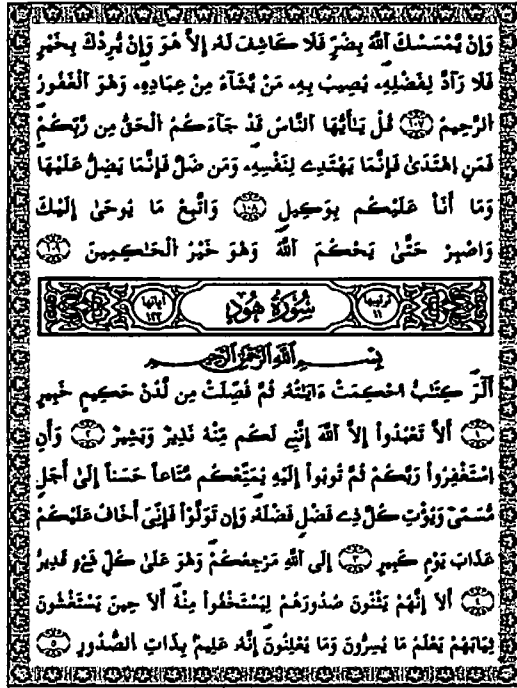 وَإِنْ يَّمْسَسْكَ اَللَّهُ بِضُرٍّ فَلَا كَاشِفَ لَهُۥ إِلاَّ هُوَ وَإِنْ يُّرِدْكَ بِخَيْرٍ
فَلَا رَآدَّ لِفَضْلِهِۦ يُصِيبُ بِهِۦ مَنْ يَّشَآءُ مِنْ عِبَادِهِۦ وَهُوَ اَلْغَفُورُ
اُلرَّحِيمُ ١٠٧ قُلْ يَٰٓأَيُّهَا اَلنَّاسُ قَدْ جَآءَكُمُ اُلْحَقُّ مِن رَّبِّكُمْ
فَمَنِ اِهْتَدَىٰ فَإِنَّمَا يَهْتَدِے لِنَفْسِهِۦ وَمَن ضَلَّ فَإِنَّمَا يَضِلُّ عَلَيْهَا
وَمَا أَنَا۠ عَلَيْكُم بِوَكِيلٍ ١٠٨ وَاتَّبِعْ مَا يُوحَىٰ إِلَيْكَ
وَاصْبِرْ حَتَّىٰ يَحْكُمَ اَللَّهُ وَهُوَ خَيْرُ اُلْحَٰكِمِينَ ١٠٩
ترتيبها ١١
سُورَةُ هُودٍ
آياتها ١٢٢
بِسْمِ اِللَّهِ اِلرَّحْمَٰنِ اِلرَّحِيمِ
أَلَٓرَ كِتَٰبٌ احْكِمَتْ ءَايَٰتُهُۥ ثُمَّ فُصِّلَتْ مِن لَّدُنْ حَكِيمٍ خَبِيرٍ
١ أَلاَّ تَعْبُدُوٓاْ إِلاَّ اَللَّهَ إِنَّنِے لَكُم مِّنْهُ نَذِيرٌ وَبَشِيرٌ ٢ وَأَنِ
اِسْتَغْفِرُواْ رَبَّكُمْ ثُمَّ تُوبُوٓاْ إِلَيْهِ يُمَتِّعْكُم مَّتَٰعاً حَسَناً إِلَىٰٓ أَجَلٍ
مُّسَمّىً وَيُؤْتِ كُلَّ ذِے فَضْلٍ فَضْلَهُۥ وَإِن تَوَلَّوْاْ فَإِنِّيَ أَخَافُ عَلَيْكُمْ
عَذَابَ يَوْمٍ كَبِيرٍ ٣ إِلَى اَللَّهِ مَرْجِعُكُمْ وَهُوَ عَلَىٰ كُلِّ شَےْءٍ قَدِيرٌ
٤ أَلَآ إِنَّهُمْ يَثْنُونَ صُدُورَهُمْ لِيَسْتَخْفُواْ مِنْهُ أَلَا حِينَ يَسْتَغْشُونَ
ثِيَابَهُمْ يَعْلَمُ مَا يُسِرُّونَ وَمَا يُعْلِنُونَ إِنَّهُۥ عَلِيمٌ بِذَاتِ اِلصُّدُورِ ٥